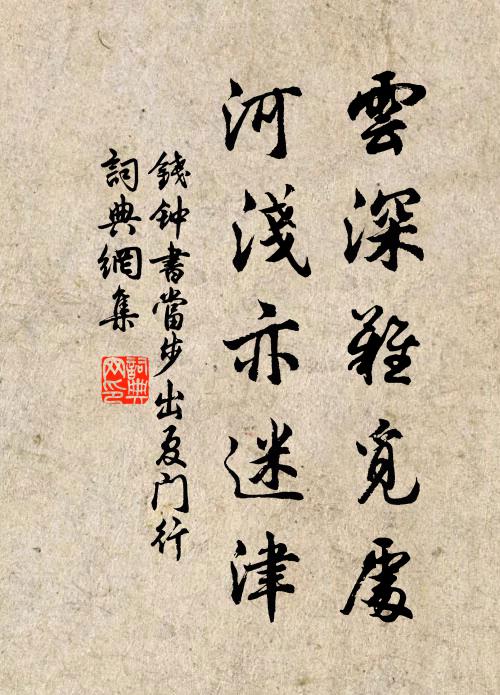 雲深難覓處
河淺亦迷津
錢钟書當步出夏门行
詞典網集
詞典网印